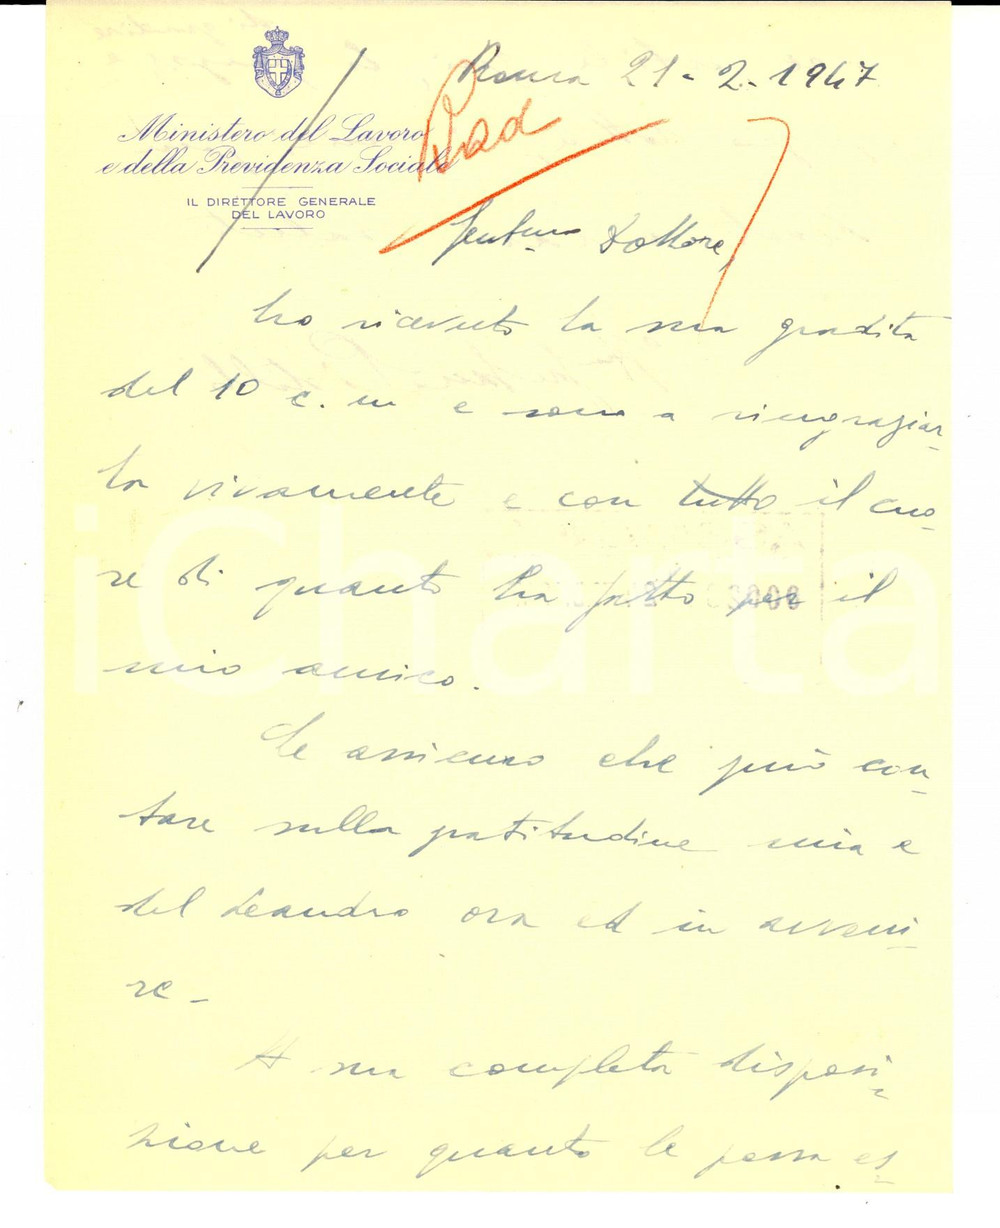 Roma 21-2-1947
Ministero del Lavoro
e della Previdenza Sociale
IL DIRETTORE GENERALE
DEL LAVORO
Dottore,
ho ricevuto la sua gradita
del 10 c. m e sono a ringraziar-
la vivamente e con tutto il cuo-
re di quanto ha fatto per il
mio amico.
Le assicuro che può con-
tare sulla gratitudine mia e
del Leandro ora ed in avveni-
re-
A sua completa disposi-
zione per quanto le possa es-
iCharta